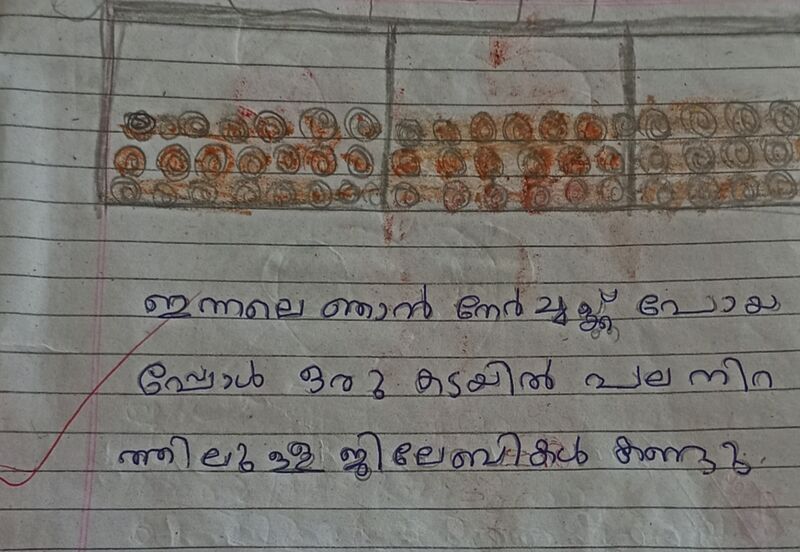 ഇന്നലെ ഞാൻ നേർച്ചക്ക് പോയ
പ്പോൾ ഒരു കടയിൽ പല നിറ
ത്തിലുള്ള ജിലേബികൾ കണ്ടു.